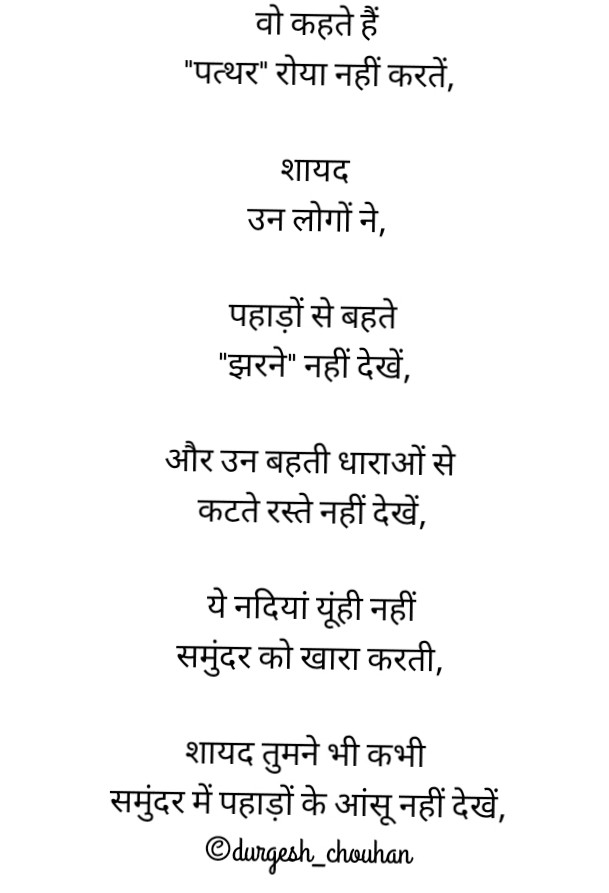 वो कहते हैं
"पत्थर" रोया नहीं करतें,
शायद
उन लोगों ने,
पहाड़ों से बहते
"झरने" नहीं देखें,
और उन बहती धाराओं से
कटते रस्ते नहीं देखें,
ये नदियां यूंही नहीं
समुंदर को खारा करती,
शायद तुमने भी कभी
समुंदर में पहाड़ों के आंसू नहीं देखें,
©durgesh_chouhan